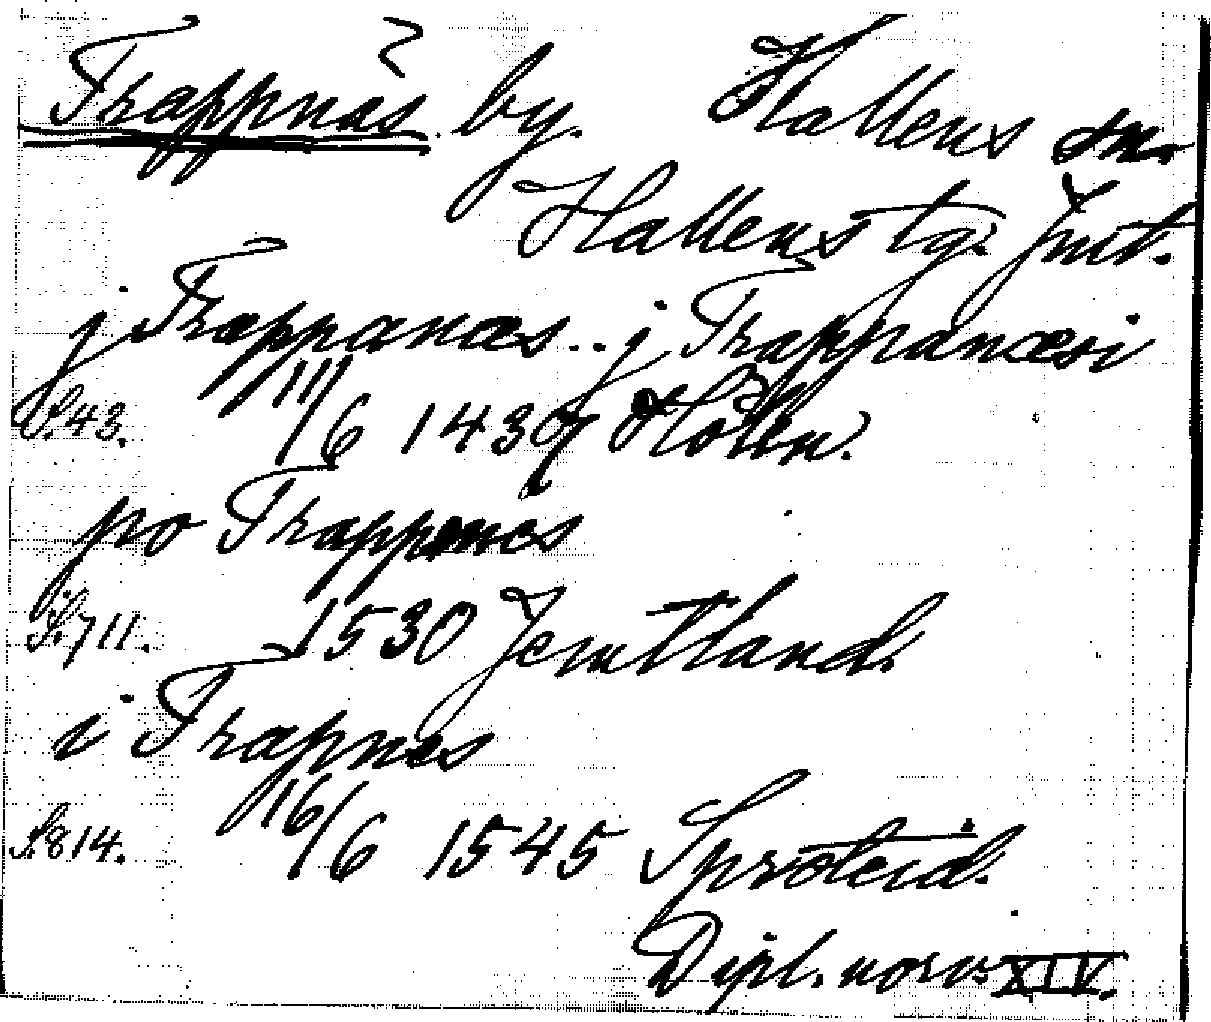 Trappnäs. by. Hallens sn.
Hallens tg. Jmt.
j Trappanæs.. j Trappanæsi
S. 43. 11/6 1437 Hólen.
po Trappenes
S. 711. 1530 Jemtland.
i Trapnes
S. 814. 16/6 1545 Sproteid.
Dipl. norv. XIV.